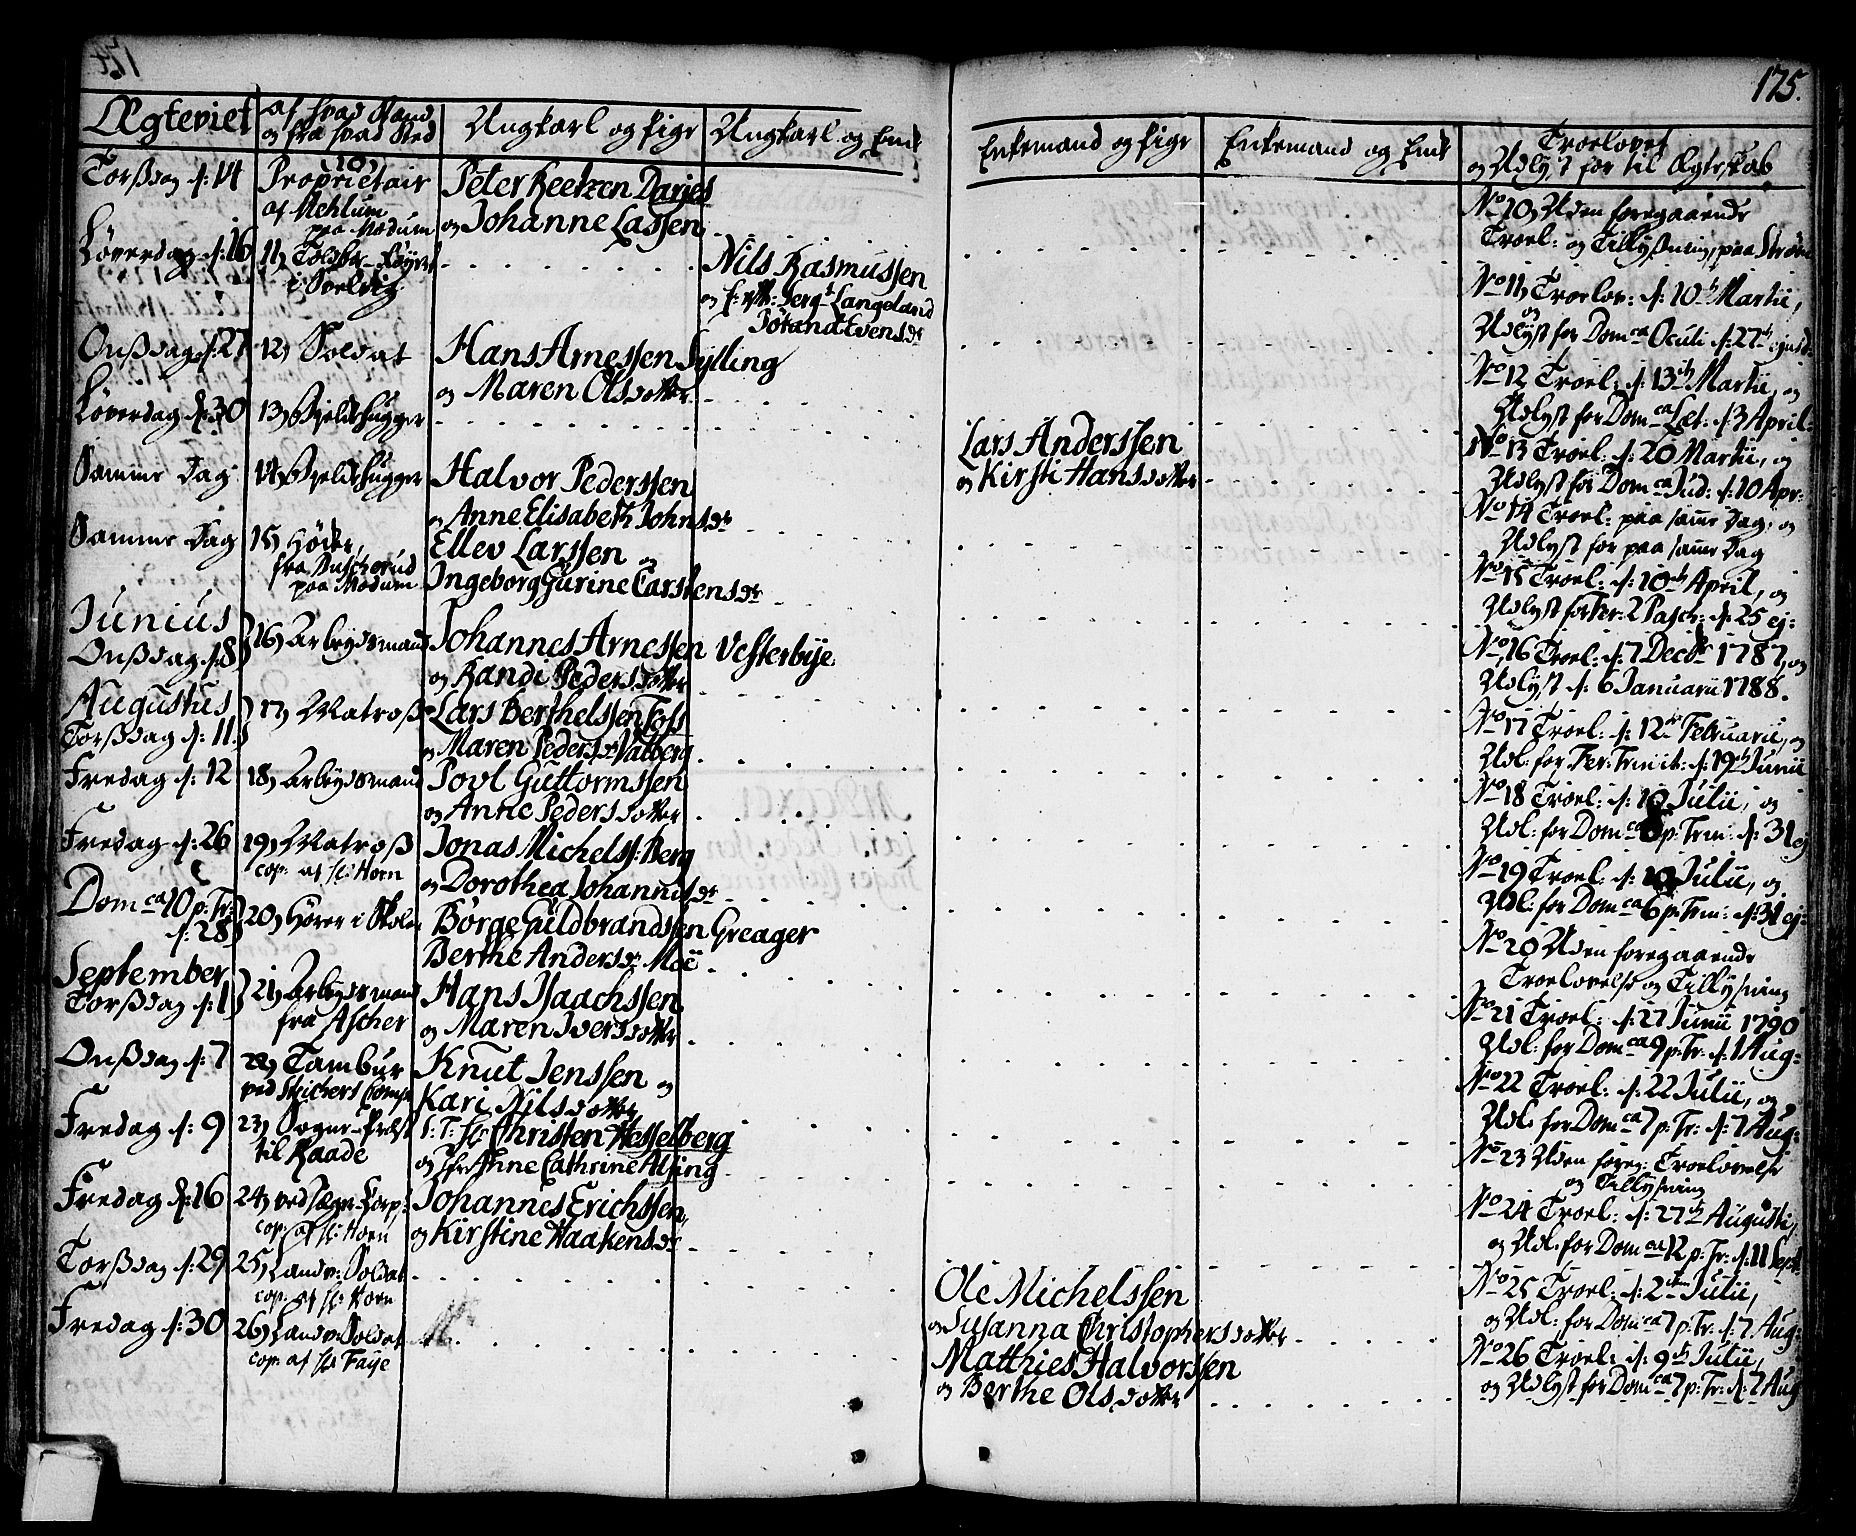 175.
Ægteviet
af hvad Stand
og fra hvad Sted
Ungkarl og Pige
Ungkarl og Enke
Enkemand og Pige
Enkemand og Enke
Troelovet
og Udlyst for til Ægteskab
Torsdag d: 14
10)
Proprietair
af Mehlum
paa Modum
Peter Reetzen Darjes
og Johanne Lassen
No 10 Uden foregaaende
Troel: og Tillysning, paa Strøm
Løverdag d: 16
11)
i Svelvig
Nils Rasmussen
Langeland
No 11) Troelov: d: 10de Martii,
og
Udlyst for Dom ca Oculi d: 27de ejusd:
Onsdag d: 27
12) Soldat
Hans Arnessen Sylling
og Maren Olsdotter
No 12 Troel: d: 13de Martii, og
Udlyst for Dom ca Læt: d: 3 April:
Løverdag d: 30
13) Bjelkehugger
Lars Anderssen
og Kirsti Hansdotter
No 13 Troel: d: 20 Martii, og
Udlyst for Dom ca Jud: d: 10 Apr:
Samme Dag
14) Bjelkehugger
Halvor Pederssen
og Anne Elisabeth Johnsdr
No 14 Troel: paa samme Dag, og
Udlyst for paa samme Dag
Samme Dag
15) Høker,
fra Buscherud
paa Modum
Ellev Larssen og
Ingeborg Gurine Carstensdr
No 15 Troel: d: 10de April, og
Udlyst for Fer: 2 Pasch: d: 25 ej:
Junius
Onsdag d: 8
16) Arbejdsmand
Johannes Arnessen Vesterbye
og Randi Pedersdotter
No 16 Troel: d: 7 Decbr 1787, og
Udlyst d: 6 Januarii 1788.
Augustus
Torsdag d: 11.
17) Matros
Lars Berthelssen Foss
og Maren Pedersdr Valberg
No 17 Troel: d: 12de Februarii, og
Udl: for Fer: Trinit: d: 19de Junii
Fredag d: 12
18) Arbejdsmand
Povl Guttormssen
og Anne Pedersdotter
No 18 Troel: d: 10 Julii, og
Udl: for Dom ca 6 p: Trin: d: 31 ej
Fredag d: 26
19) Matros
cop: af Hr: Horn
Jonas Michelss: Berg
og Dorothea Johannisdr
No 19 Troel: d: 10 Julii, og
Udl: for Dom ca 6 p: Trin: d: 31 ej:
Dom ca 10 p: Tr:
d: 28
20) Hører i Skolen
Børge Guldbrandssen Greager
Berthe Andersdr Moe
No 20 Uden foregaaende
Troelovelse og Tillysning
September
Torsdag d: 1
21) Arbejdsmand
fra Ascher
Hans Isaachssen
og Maren Iversdotter
No 21 Troel: d: 27 Junii 1790
Udl: for Dom ca 9 p: Tr: d: 1 Aug:
Onsdag d: 7
22) Tambur
ved Steichers Comp:
Knut Jenssen og
Kari Nilsdotter
No 22 Troel: d: 22 Julii, og
Udl: for Dom ca 7 p: Tr: d: 7 Aug:
Fredag d: 9
23) Sogne-Præst
til Raade
S: T: Hr Christen Hesselberg
og Jfr Anne Cathrine Alsing
No 23 Uden foreg: Troelovelse
og Tillysning
Fredag d: 16
24) ved Jæger-Korps:
cop: af Hr: Horn
Johannes Erichssen,
og Kirstine Haakensdr
No 24 Troel: d: 27de Augusti,
og Udl: for Dom ca 12 p: Tr: d: 11 Sept:
Torsdag d: 29
25) Landv: Soldat
cop: af Hr: Horn
Ole Michelssen
og Susanna Christophersdotter
No 25 Troel: d: 2den Julii,
og Udl: for Dom ca 7 p: Tr: d: 7 Aug:
Fredag d: 30
26) Landv: Soldat
cop: af Hr Faye
Matthies Halvorssen
og Berthe Olsdotter
No 26 Troel: d: 9de Julii,
og Udlyst for Dom ca 7 p: Tr: d: 7 Aug